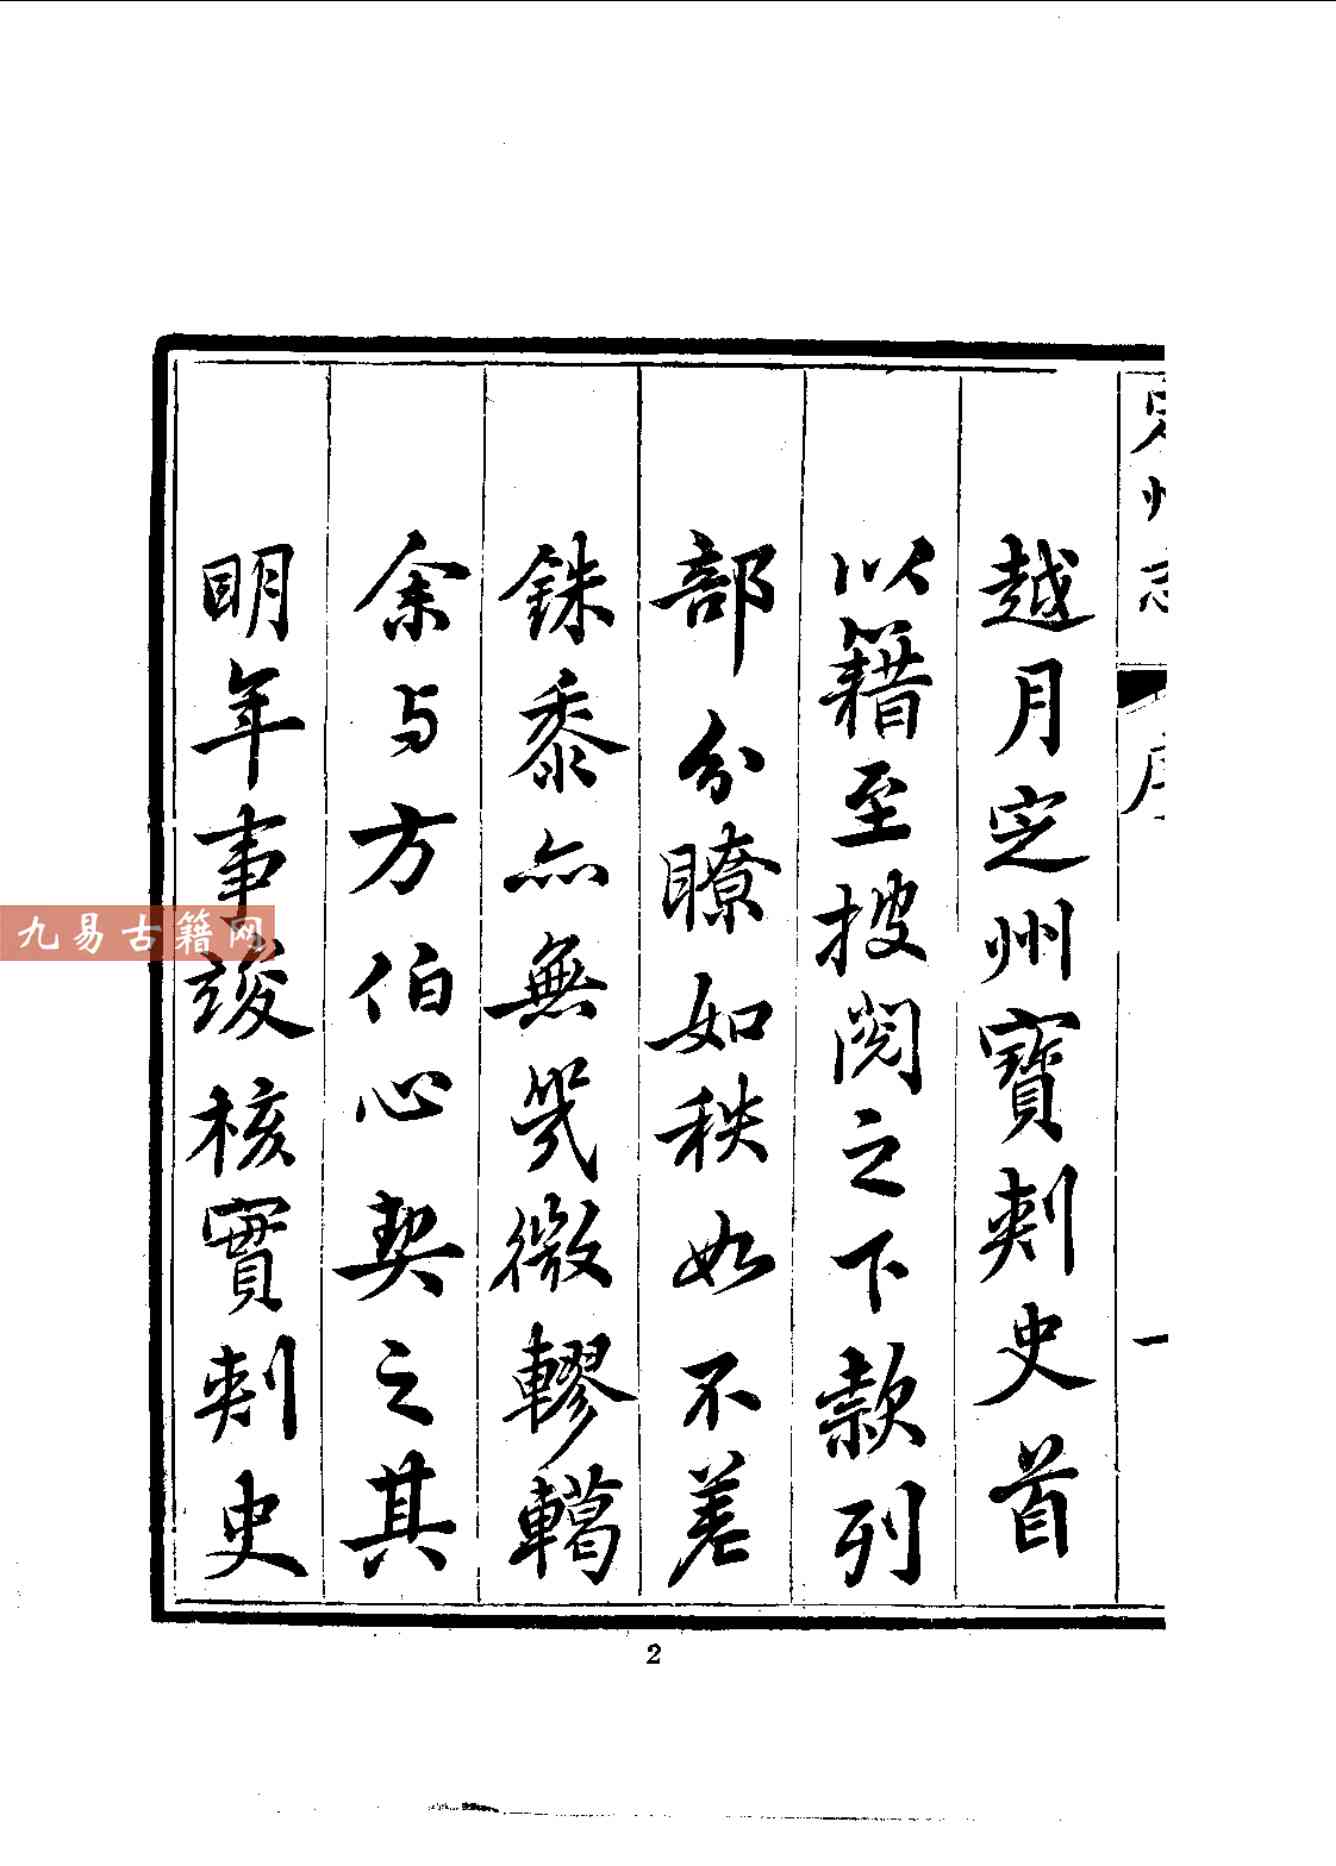 定州志
序
一
越月定州寶刺史首
以籍至披閱之下款列
部分瞭如秩如不差
銖黍亦無幾微轇轕
余与方伯心契之其
明年事竣核實刺史
九易古籍网
2